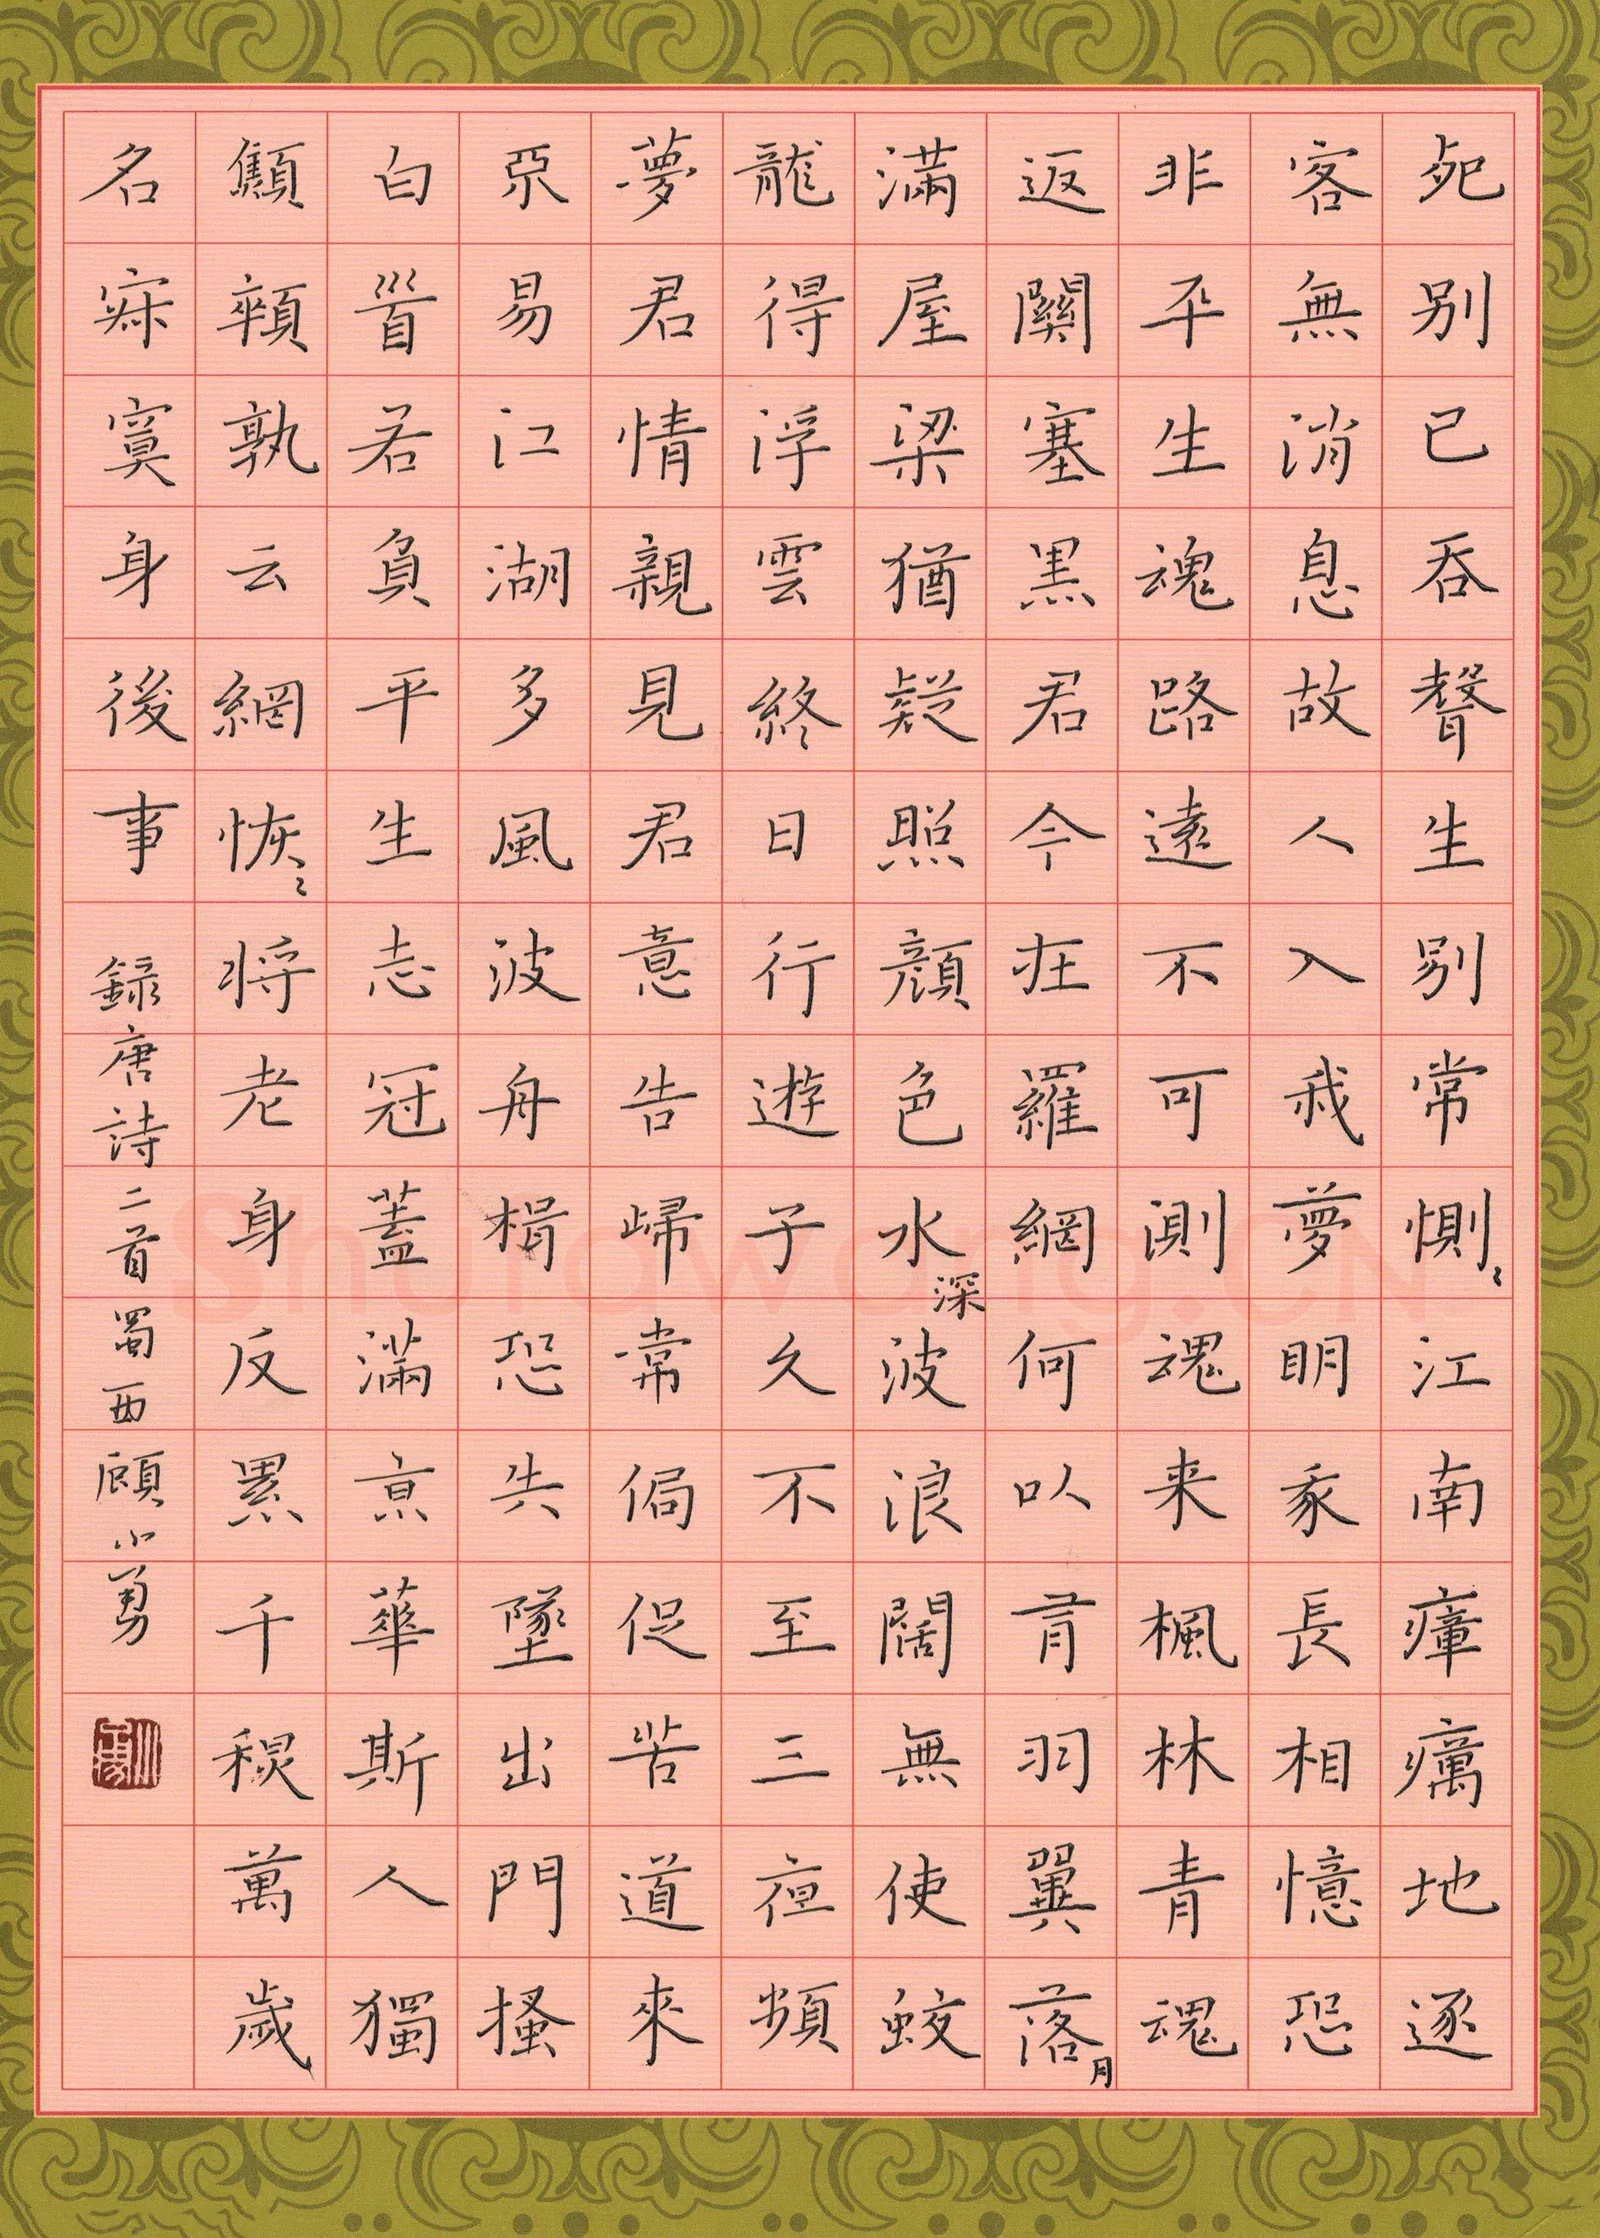 死別已吞聲生別常惻〻江南瘴癘地逐
客無消息故人入我夢明我長相憶恐
非平生魂路遠不可測魂来楓林青魂
返關塞黑君今在羅網何以有羽翼落月
滿屋梁猶疑照顏色水深波浪闊無使蛟
龍得浮雲終日行遊子久不至三夜頻
夢君情親見君意告歸常侷促苦道來
惡易江湖多風波舟楫恐失墜出門搔
白首若負平生志冠蓋滿京華斯人獨
顦顇孰云網恢〻將老身反累千秋萬歲
名寂寞身後事
錄唐詩二首蜀西顧小勇
Shufawang.CN